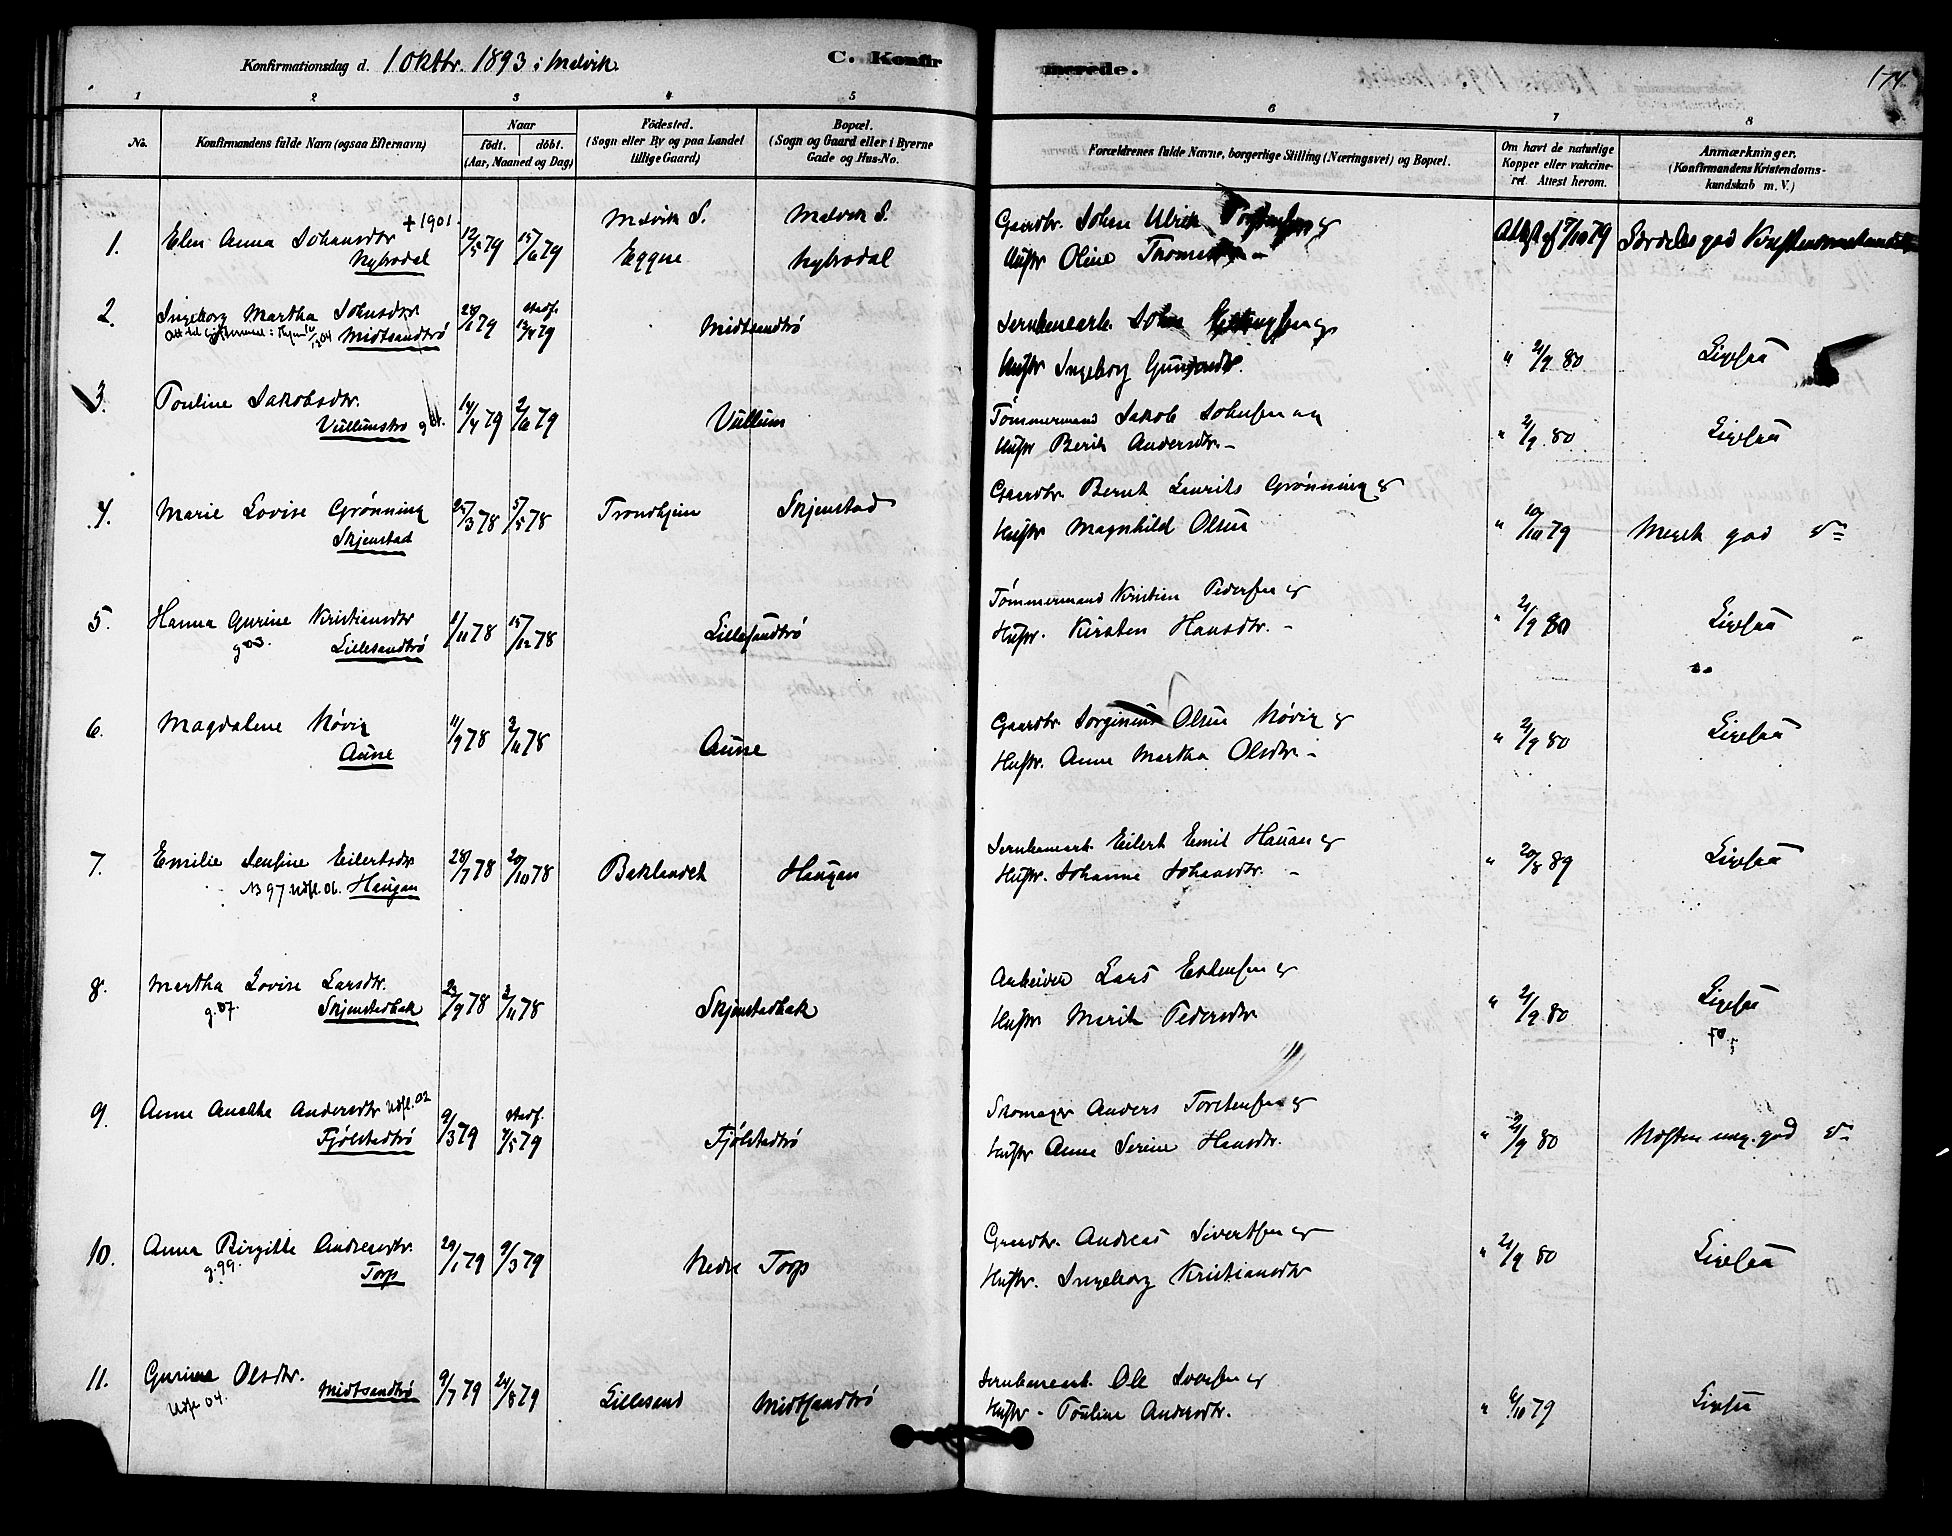 Konfirmationsdag d. 1 Oktbr. 1893 i Malvik.
C. Konfirmerede.
174.
1 2 3 4 5 6 7 8
No.
Konfirmandens fulde Navn (ogsaa Efternavn)
Naar
født. døbt.
(Aar, Maaned og Dag)
Fødested.
(Sogn eller By og paa Landet
tillige Gaard)
Bopæl.
(Sogn og Gaard eller i Byerne
Gade og Hus-No.
Forældrenes fulde Navne, borgerlige Stilling (Næringsvei) og Bopæl.
Om havt de naturlige
Kopper eller vakcine-
ret. Attest herom.
Anmærkninger.
(Konfirmandens Kristendoms-
kundskab m. V.)
1. Elen Anna Johansdtr + 1901.
Nybrodal
12/5 79 15/6 79
Malvik S. Malvik S.
Eggne Nybrodal
Gaardbr. Johan Ulrik
Hustr Oline
Attest af 7/10 79 Særdeles god Kristendomskundsk
2. Ingeborg Martha Johnsdtr
Midtsandtrø
28/1 79 stadf. 13/4 79
Midtsandtrø
Jernbanearb. John
Hustr Ingeborg
" 21/9 80 Ligesaa
3. Pauline Jakobsdtr.
Vullumstrø g 01.
14/4 79 2/6 79
Vullum
Tømmermand Jakob Johnsen og
Hustr Berit Andersdtr. -
" 21/9 80 Ligesaa
4. Marie Lovise Grønning
Skjenstad
25/3 78 5/5 78
Trondhjem Skjenstad
Gaardbr. Bernt Laurits Grønning &
Hustr Magnhild Olsen
" 10/10 79 Meget god Do
5. Hanna Gurine Kristiansdtr
g 03. Lillesandtrø
1/11 78 15/12 78
Lillesandtrø
Tømmermand Kristian Pedersen &
Hustr. Kirsten Hansdtr. -
" 21/9 80 Ligesaa
6. Magdalene Høvig
Aune
11/9 78 3/11 78
Aune
Gaardbr Jørginus Olsen Høvig &
Hustr. Anne Martha Olsdtr -
" 21/9 80 Ligesaa
7. Emilie Jensine Eilertsdtr
NB 97 Udfl. 06. Haugan
28/7 78 20/10 78
Baklandet Haugan
Jernbanearb. Eilert Emil Hauan &
Hustr. Johanne Johansdtr. -
" 20/8 89 Ligesaa
8. Martha Lovise Larsdtr.
g. 07. Skjenstadbak
23/9 78 3/11 78
Skjenstadbak
Arbeider Lars Estensen &
Hustr Marit Pedersdtr
" 21/9 80 Ligesaa
9. Anne Andersdtr Udfl. 02
Fjølstadtrø
9/3 79 stadf. 4/5 79
Fjølstadtrø
Skomager Anders Torstensen &
Hustr Anne Serine Hansdtr.
" 21/9 80 Næsten meg. god Do
10. Anna Birgitte Andreasdtr.
g. 99. Torp
29/1 79 9/3 79
Nedre Torp
Gaardbr. Andreas Sivertsen &
Hustr. Ingeborg Kristiansdtr
" 21/9 80 Ligesaa
11. Gurine Olsdtr.
Udfl 04. Midtsandtrø
9/7 79 24/8 79
Lillesand Midtsandtrø
Jernbanearb. Ole Ivarsen &
Hustr - Pauline Andersdtr.
" 6/10 79 Ligesaa